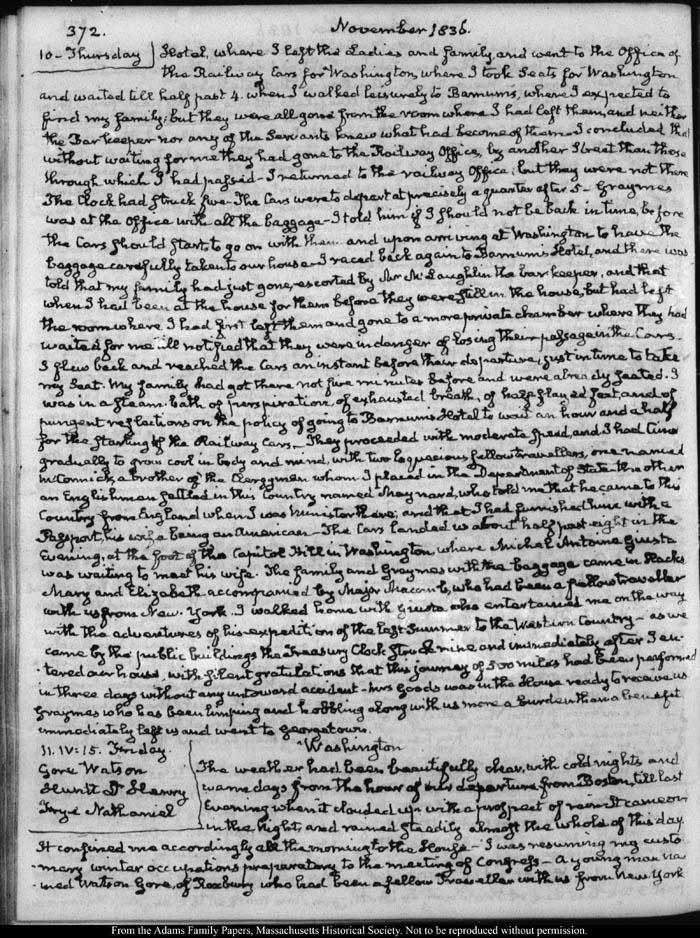 372. November 1836.
10 - Thursday Hotel, where I left the Ladies and family and went to the Office of
the Railway Cars for Washington, where I took Seats for Washington
and waited till half past 4. when I walked leisurely to Barnums, where I expected to
find my family; but they were all gone from the room where I had left them, and neither
the Bar keeper nor any of the Servants knew what had become of them - I concluded that
without waiting for me they had gone to the Railway Office, by another Street than those
through which I had passed - I returned to the railway Office; but they were not there
The Clock had struck five - The Cars were to depart at precisely a quarter after 5 - Graymes
was at the Office with all the baggage - I told him if I should not be back in time, before
the Cars should start, to go on with them and upon arriving at Washington to have the
baggage carefully taken to our house - I raced back again to Barnum's Hotel, and there was
told that my family had just gone, escorted by Mr McLaughlin the bar keeper, and that
when I had been at the house for them before they were still in the house, but had left
the room where I had first left them and gone to a more private chamber where they had
waited for me till notified that they were in danger of losing their passage in the Cars -
I flew back and reached the Cars an instant before their departure, just in time to take
my Seat. My family had got there not five minutes before and were already seated. I
was in a steam-bath of perspiration, of exhausted breath, of half flayed feet, and of
pungent reflections on the policy of going to Barnum's Hotel to wait an hour and a half
for the starting of the Railway Cars. They proceeded with moderate speed, and I had time
gradually to grow cool in body and mind, with two loquacious fellow travellers, one named
McCormick, a brother of the Clergyman whom I placed in the Department of State the other
an Englishman settled in this Country named Maynard, who told me that he came to this
Country from England when I was Minister there; and that I had furnished him with a
Passport, his wife being an American - The Cars landed us about half past eight in the
Evening, at the foot of the Capitol Hill in Washington, where Michel Antoine Giusta
was waiting to meet his wife. The family and Graymes with the baggage came in Hacks
Mary and Elizabeth accompanied by Major Macomb, who had been a fellow traveller
with us from New York. I walked home with Giusta who entertained me on the way
with the adventures of his expedition of the last Summer to the Western Country - as we
came by the public buildings the Treasury Clock Struck nine and immediately after I en-
tered our house, with silent gratulations that this journey of 500 miles had been performed
in three days without any untoward accident - Mrs Goods was in the House ready to receive us
Graymes who has been limping and hobbling along with us more a burden than a benefit
immediately left us and went to Georgetown.
11. IV: 15. Friday. Washington
Gore Watson The weather had been beautifully clear, with cold nights and
Huntt Dr Henry warm days from the hour of our departure from Boston, till last
Frye Nathaniel Evening when it clouded up with a prospect of rain. It came on
in the Night, and rained steadily almost the whole of this day.
It confined me accordingly all the morning to the House - I was resuming my custo-
mary winter occupations preparatory to the meeting of Congress - A young man na-
med Watson Gore, of Roxbury who had been a fellow Traveller with us from New York
From the Adams Family Papers, Massachusetts Historical Society. Not to be reproduced without permission.